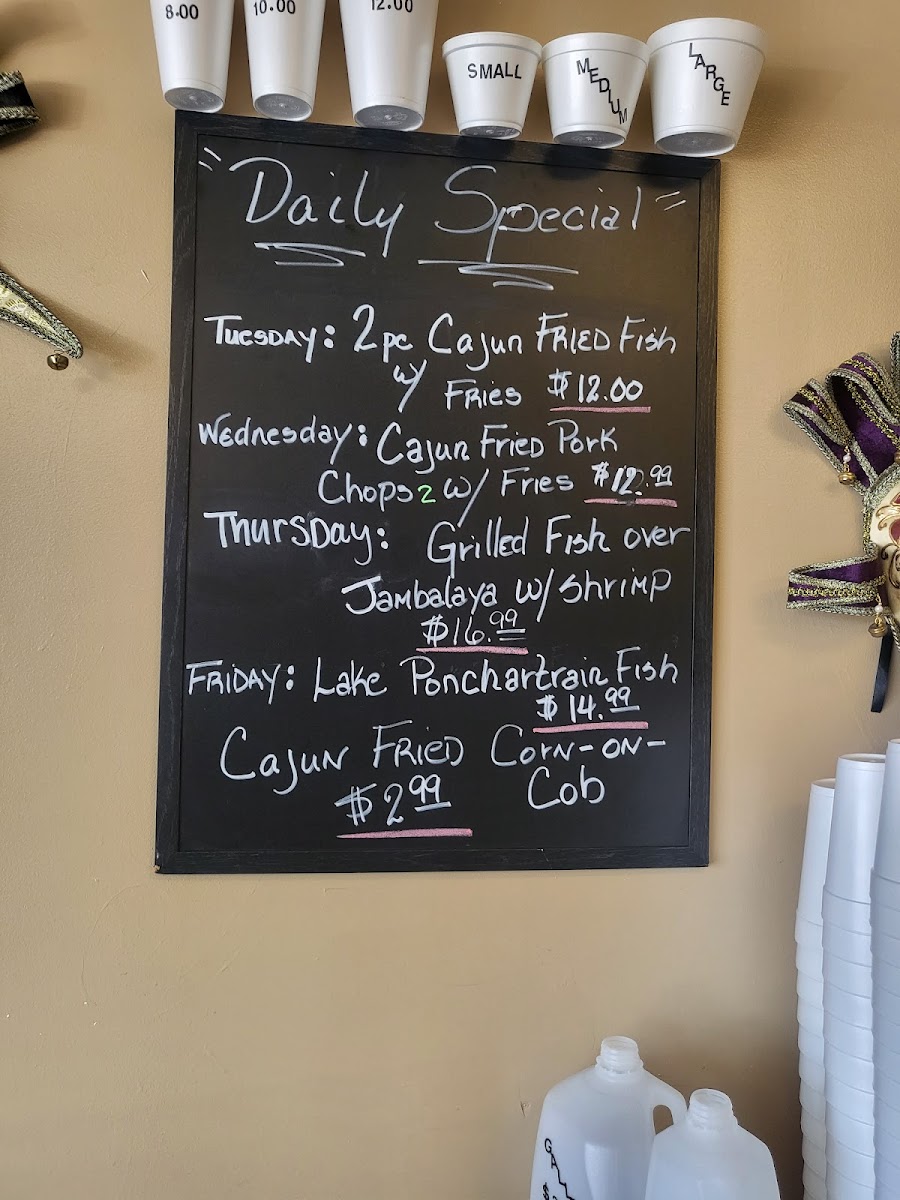 8.00 10.00 12.00
SMALL MEDIUM LARGE
"Daily Special"
Tuesday: 2pc Cajun Fried Fish
w/ Fries $12.00
Wednesday: Cajun Fried Pork
Chops 2 w/ Fries $12.99
Thursday: Grilled Fish over
Jambalaya w/ Shrimp
$16.99
Friday: Lake Ponchartrain Fish
$14.99
Cajun Fried Corn-on-
$2.99 Cob